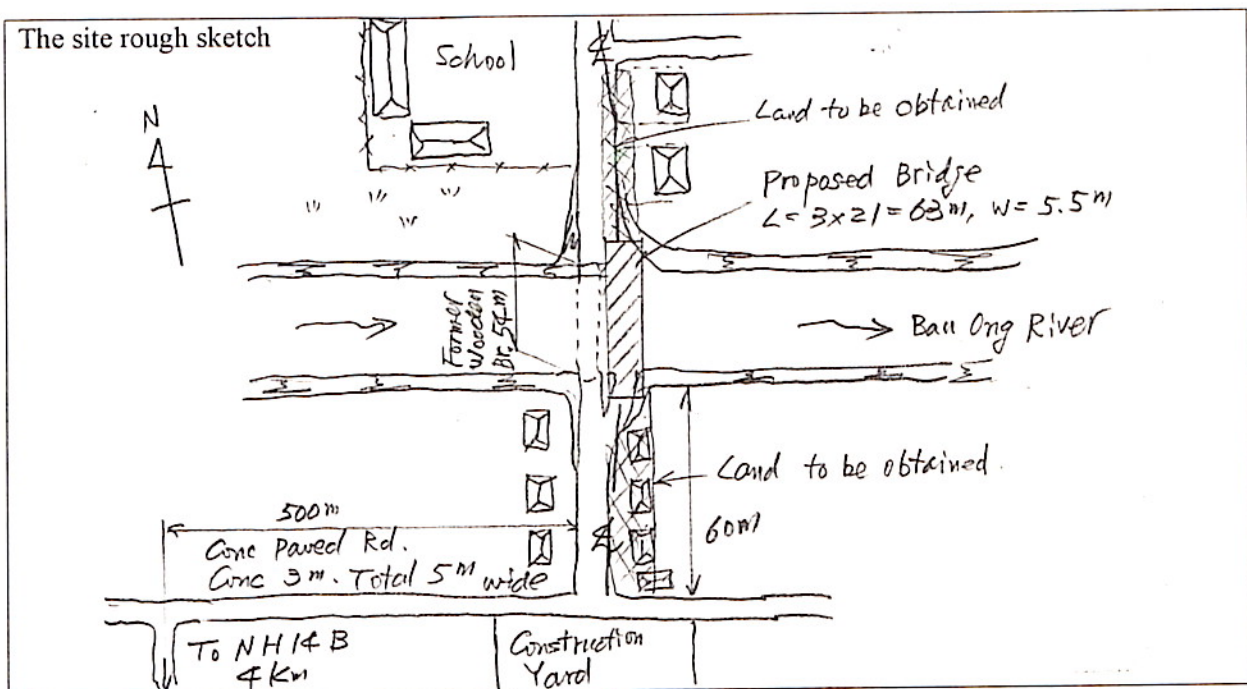 The site rough sketch
School
N
Land to be obtained
Proposed Bridge
L = 3 x 21 = 63 m, W = 5.5 m
Former
Wooden
Br. 54m
Bau Ong River
Land to be obtained.
60m
500m
Conc Paved Rd.
Conc 3 m. Total 5 m wide
To NH 14 B
4 Km
Construction
Yard